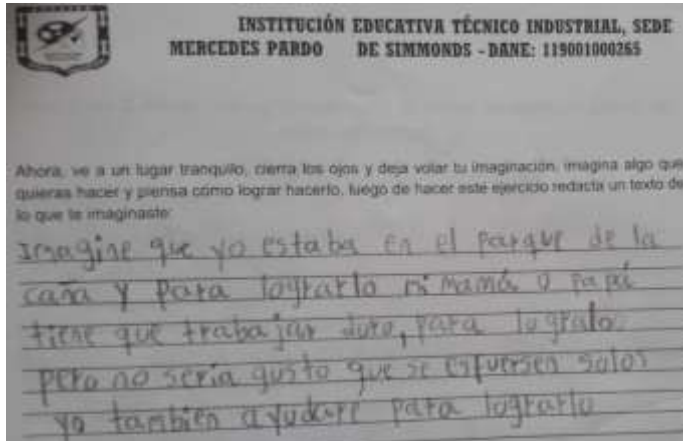 INSTITUCIÓN EDUCATIVA TÉCNICO INDUSTRIAL, SEDE
MERCEDES PARDO DE SIMMONDS - DANE: 119001000265
Ahora, ve a un lugar tranquilo, cierra los ojos y deja volar tu imaginación, imagina algo que
quieras hacer y piensa cómo lograr hacerlo, luego de hacer este ejercicio redacta un texto de
lo que te imaginaste:
Imagine que yo estaba en el parque de la
caña y para lograrlo mi mamá o papá
tiene que trabajar duro, para logralo
pero no seria gusto que se esfuersen solos
yo tambien ayudare para lograrlo